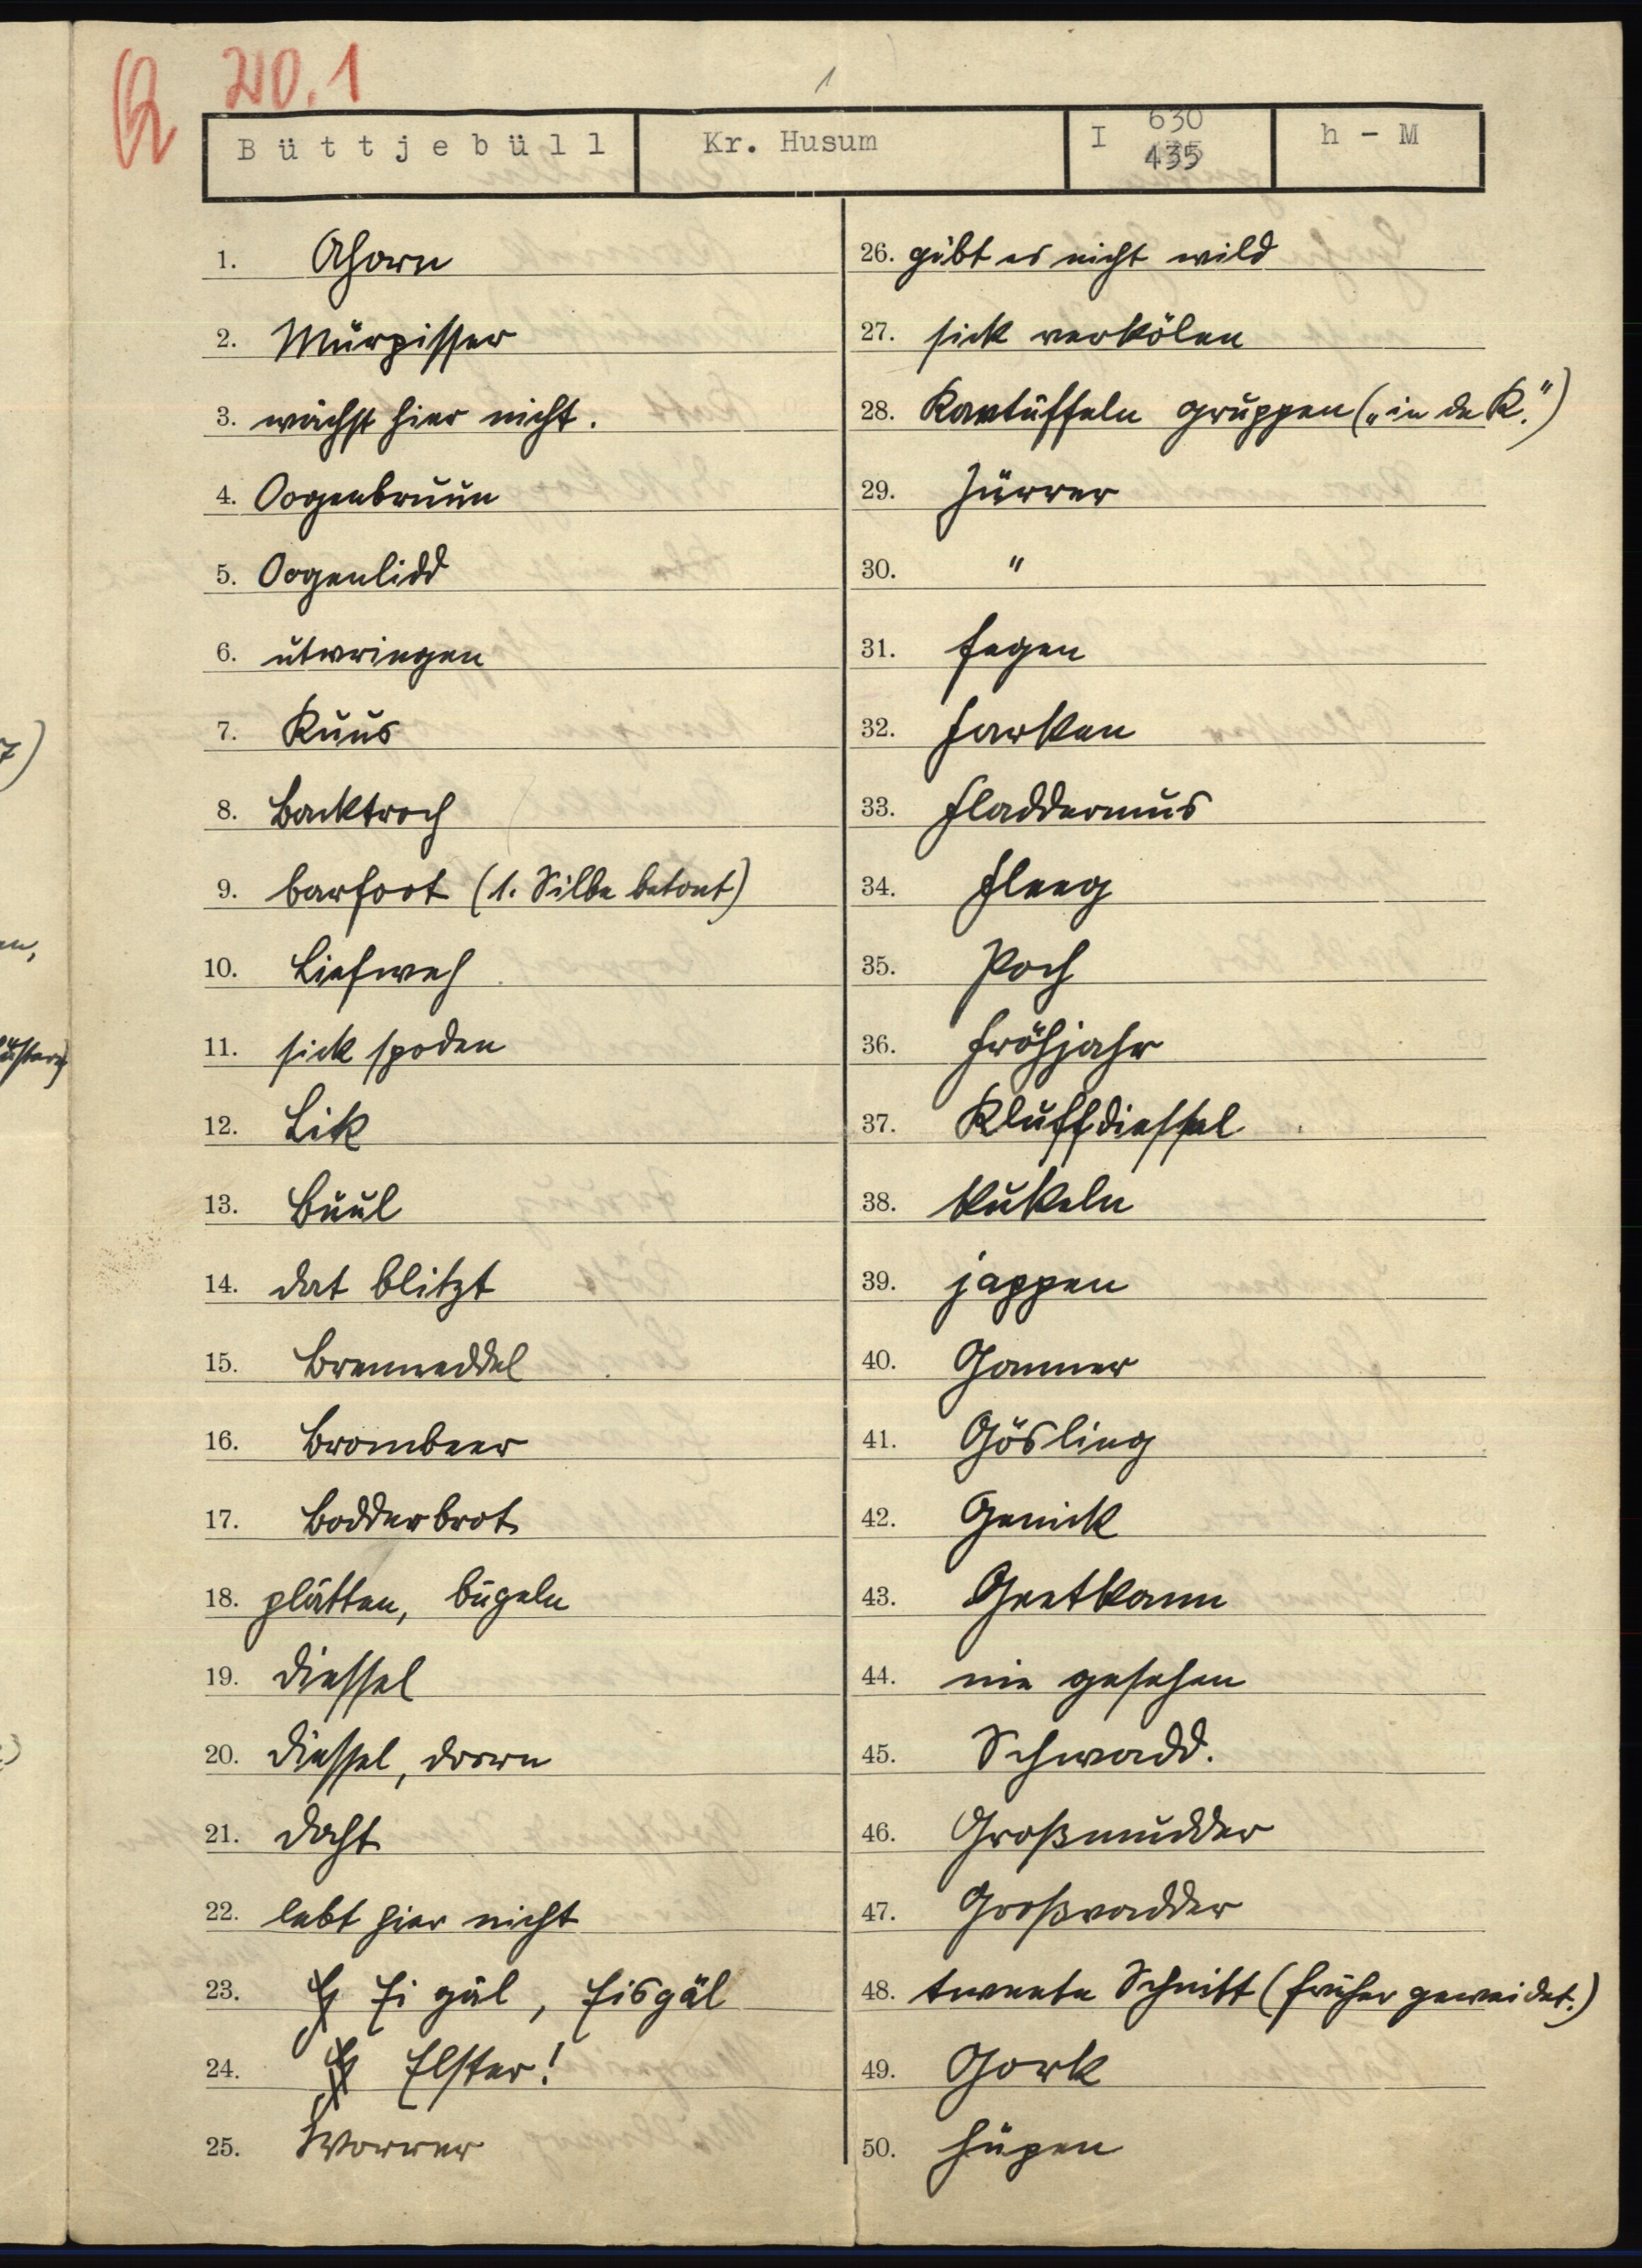 210.1
1
Büttjebüll Kr. Husum I 630 435 h - M
1. Ahorn
2. Mürpisser
3. wächst hier nicht.
4. Oogenbruun
5. Oogenlidd
6. utwringen
7. Kuus
8. Backtroch
9. barfoot (1. Silbe betont)
10. Liefweh
11. sick spoden
12. Lik
13. Buul
14. dat blitzt
15. Brenneddel
16. Brombeer
17. Bodderbrot
18. plätten, bügeln
19. Diessel
20. Diessel, Doorn
21. Docht
22. lebt hier nicht
23. Ei gäl, Eisgäl
24. Elster!
25. Worrer
26. gibt es nicht wild
27. sick verkölen
28. Kantüffeln gruppen („in de K.")
29. Jürrer
30. "
31. fegen
32. Farken
33. Fladdermus
34. Fleeg
35. Poch
36. Fröhjahr
37. Kluffdiessel
38. kukeln
39. jappen
40. Ganner
41. Gösling
42. Genick
43. Geetkann
44. nie gesehen
45. Schwadd.
46. Großmudder
47. Großvadder
48. tweete Schnitt (früher geweidet.)
49. Gork
50. hüpen